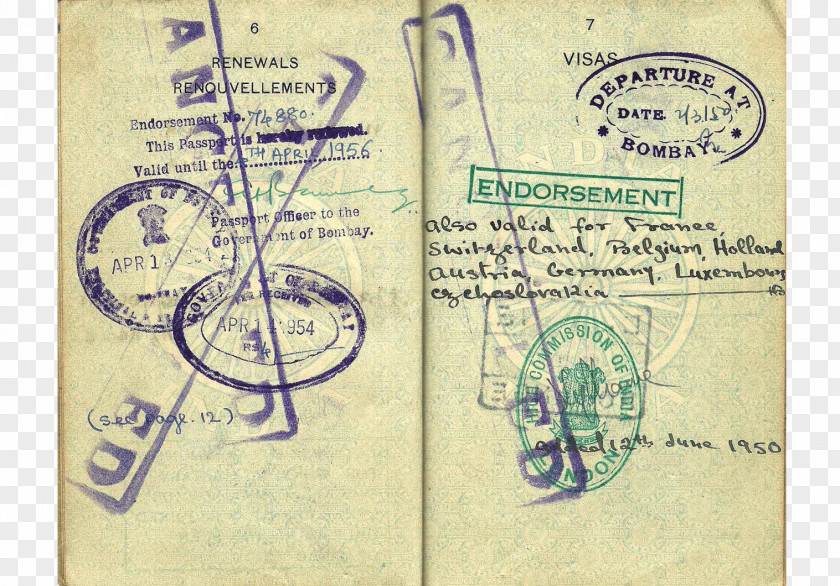 6
RENEWALS
RENOUVELLEMENTS
Endorsement No. 74880.
This Passport is hereby renewed.
Valid until the 7TH APRIL 1956
Passport Officer to the
Government of Bombay.
GOVERNMENT OF
APR 13 1954
GOVT OF BOMBAY
FEE RECEIVED
APR 14 1954
RS
(see page. 12)
CANCELLED
7
VISAS
DEPARTURE AT
DATE 2/3/50
BOMBAY
ENDORSEMENT
Also valid for France,
Switzerland, Belgium, Holland
Austria, Germany, Luxembourg
Czechoslovakia
HIGH COMMISSION OF INDIA
LONDON
Dated 12th June 1950
CANCELLED